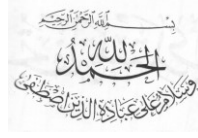 بسم الله الرحمن الرحيم
الحمد لله
وسلام على عباده الذين اصطفى